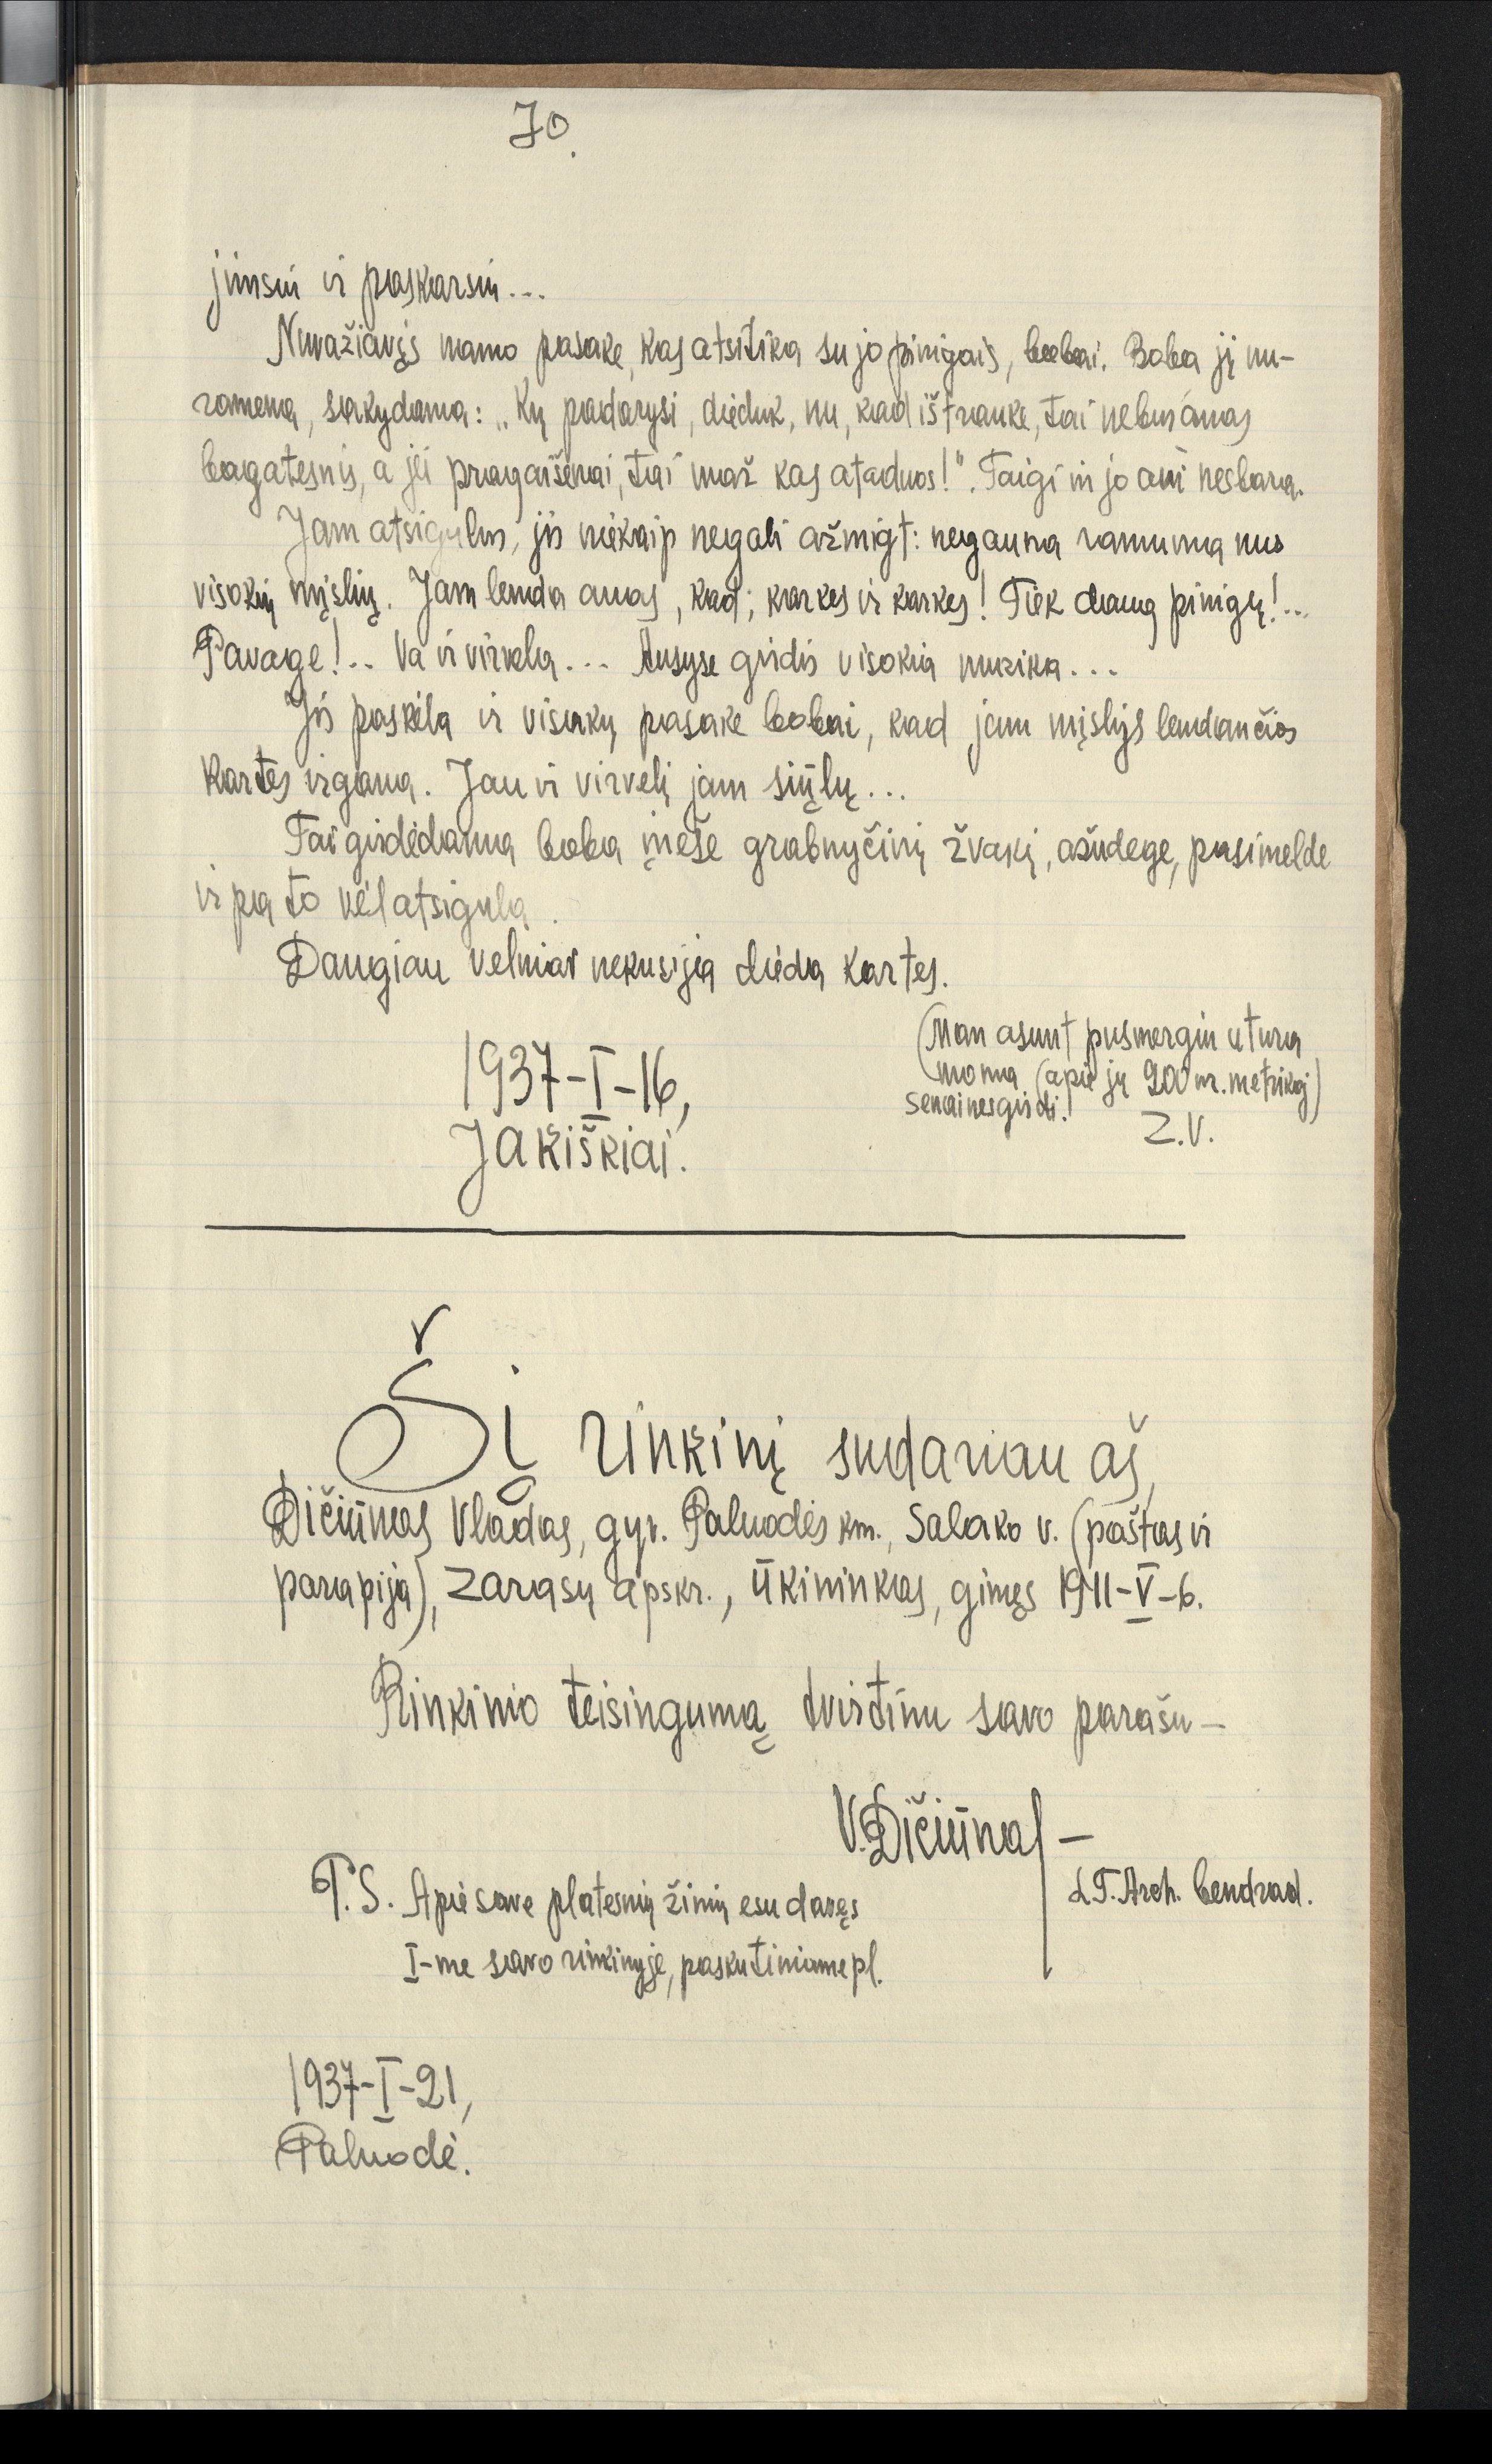 70.
jimsiu ir paskarsiu...
Nuvažiavįs namo pasake, kas atsitika su jo pinigais, bobai. Boba jį nu-
ramena, sakydama: „Ką padarysi, dieduk, nu, kad ištrauke, tai nebus anas
bagatesnis, a jei pragaišenai, tai maž kas ataduos!". Taigi in jo ani nesbara.
Jam atsigulus, jis niekaip negali ažmigt: negauna ramumą nuo
visokių mįslių. Jam lenda anas, kad; karkes ir karkes! Tiek daug pinigų!..
Pavage!.. Va ir virvela... Ausyse girdis visokia muzika...
Jis paskėla ir visaką pasake bobai, kad jam mįslys lendančios
kartes irgana. Jau ir virvelį jam siūlų...
Tai girdėdama boba įneše grabnyčinį žvakį, ažudege, pasimelde
ir pa to vėl atsigula.
Daugiau velniai nekusija dieda kartes.
1937-I-16,
Jakiškiai.
(Man asunt pusmergiu utura
moma (apie ją 200 nr. metrikoj)
senai nesgirdi.
Z.V.
Šį rinkinį sudariau aš,
Dičiūnas Vladas, gyv. Paluodės km., Salako v. (paštas ir
parapija), Zarasų apskr., ūkininkas, gimęs 1911-V-6.
Rinkinio teisingumą tvirtinu savo parašu—
V. Dičiūnas—
L.T. Arch. bendrad.
P.S. Apie save platesnių žinių esu davęs
I-me savo rinkinyje, paskutiniame pl.
1937-I-21,
Paluodė.